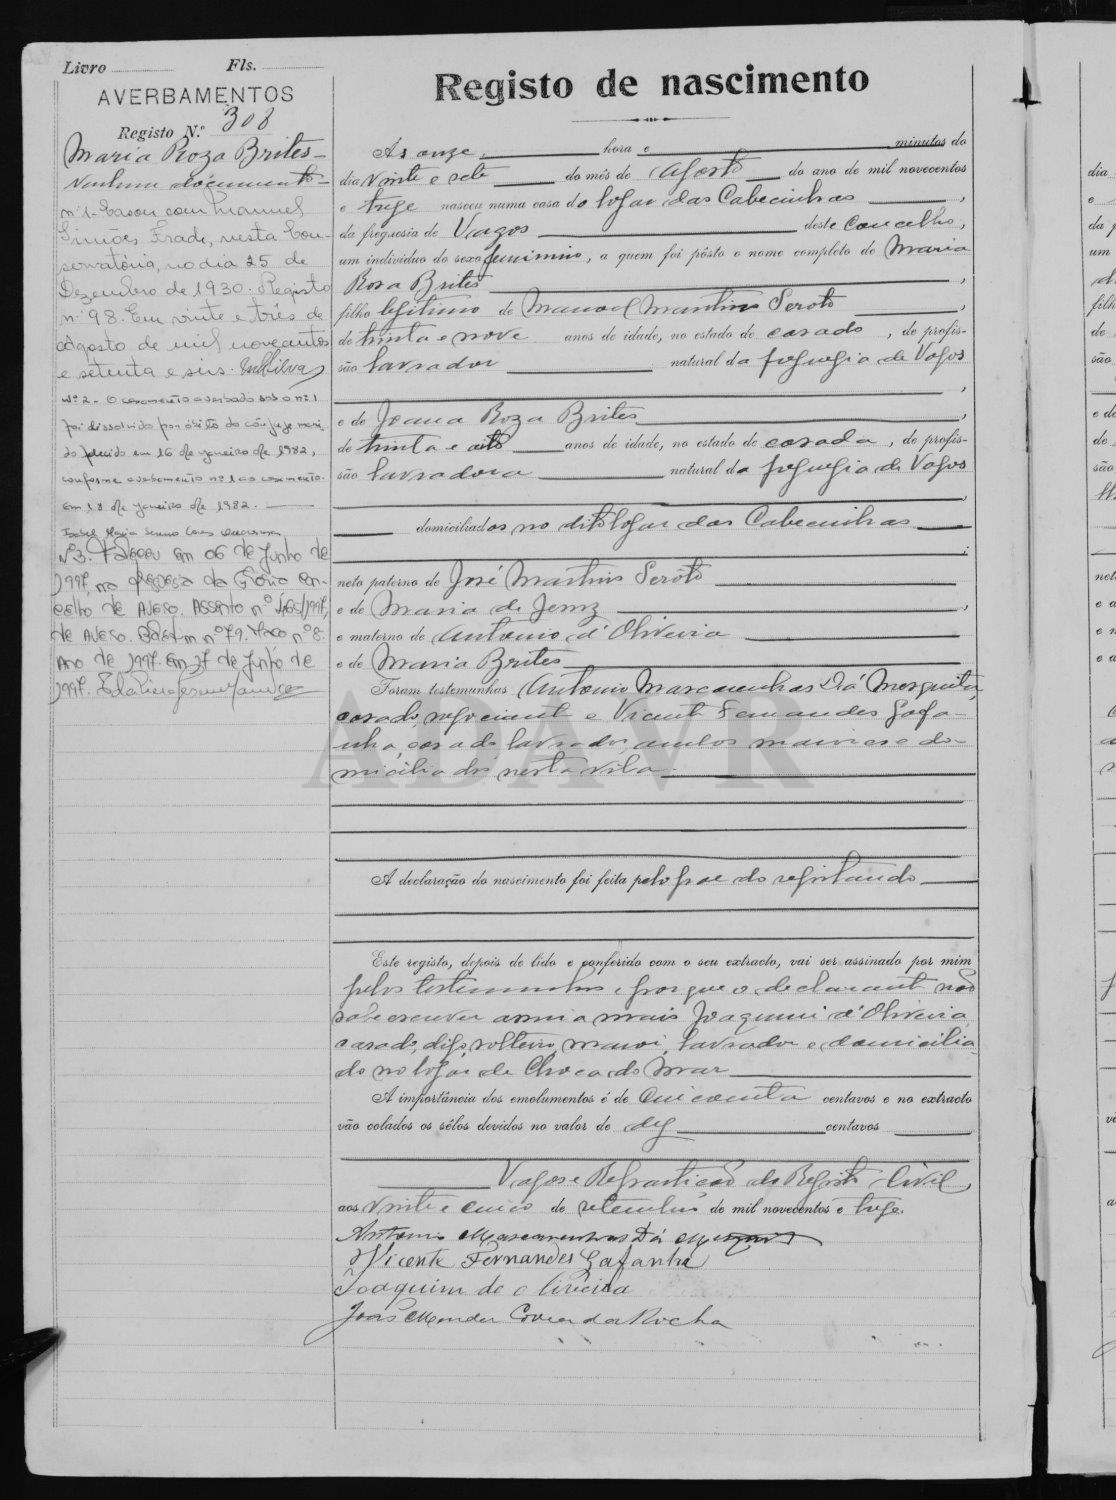 Livro Fls.
AVERBAMENTOS
Registo N.º 308
Maria Roza Brites
Nenhum documento
nº 1- Casou com Manuel
Simões Frade, nesta Con-
servatória, no dia 25 de
Dezembro de 1930. Registo
nº 98. Em vinte e três de
Agosto de mil novecentos
e setenta e seis.
Nº 2 - O casamento averbado sob o nº 1
foi dissolvido por óbito do cônjuge mari-
do falecido em 16 de janeiro de 1982,
conforme averbamento nº 1 ao casamento.
Em 18 de janeiro de 1982.
Nº 3. Faleceu em 06 de Junho de
1997, na freguesia da Glória con-
celho de Aveiro. Assento nº /1997,
de Aveiro. nº 79. Maço nº 8.
Ano de 1997. Em 27 de Junho de
1997.
Registo de nascimento
Ás onze hora e minutos do
dia vinte e sete do mês de Agosto do ano de mil novecentos
e treze nasceu numa casa do logar das Cabecinhas ,
da freguesia de Vagos deste concelho,
um individuo do sexo feminino, a quem foi pôsto o nome completo de Maria
Rosa Brites ,
filho legitimo de Manoel Martins Seroto ,
de trinta e nove anos de idade, no estado de casado , de profis-
são lavrador natural da freguezia de Vagos
,
e de Joana Roza Brites ,
de trinta e oito anos de idade, no estado de casada , de profis-
são lavradora natural da freguezia de Vagos
,
domiciliados no dito logar das Cabecinhas
;
neto paterno de José Martins Seroto
e de Maria de Jesuz ,
e materno de Antonio d'Oliveira
e de Maria Brites
Foram testemunhas Antonio Mascarenhas Dá Mesquita,
casado, negociante e Vicente Fernandes Gafa-
nha, casado lavrador, ambos maiores e do-
miciliados nesta vila.
A declaração do nascimento foi feita pelo pae do registando
Este registo, depois de lido e conferido com o seu extracto, vai ser assinado por mim
pelas testemunhas e porque o declarante não
sabe escrever assina mais Joaquim d'Oliveira,
casado, digo, solteiro, maior, lavrador e domicilia-
do no logar de Choca do Mar
A importância dos emolumentos é de cincoenta centavos e no extracto
vão colados os sêlos devidos no valor de dez centavos
Vagos e Repartição do Registo Civil,
aos vinte e cinco de setembro de mil novecentos e treze.
Antonio Mascarenhas Dá Mesquita
Vicente Fernandes Gafanha
Joaquim de Oliveira
João Mendes Correa da Rocha
ADAVR